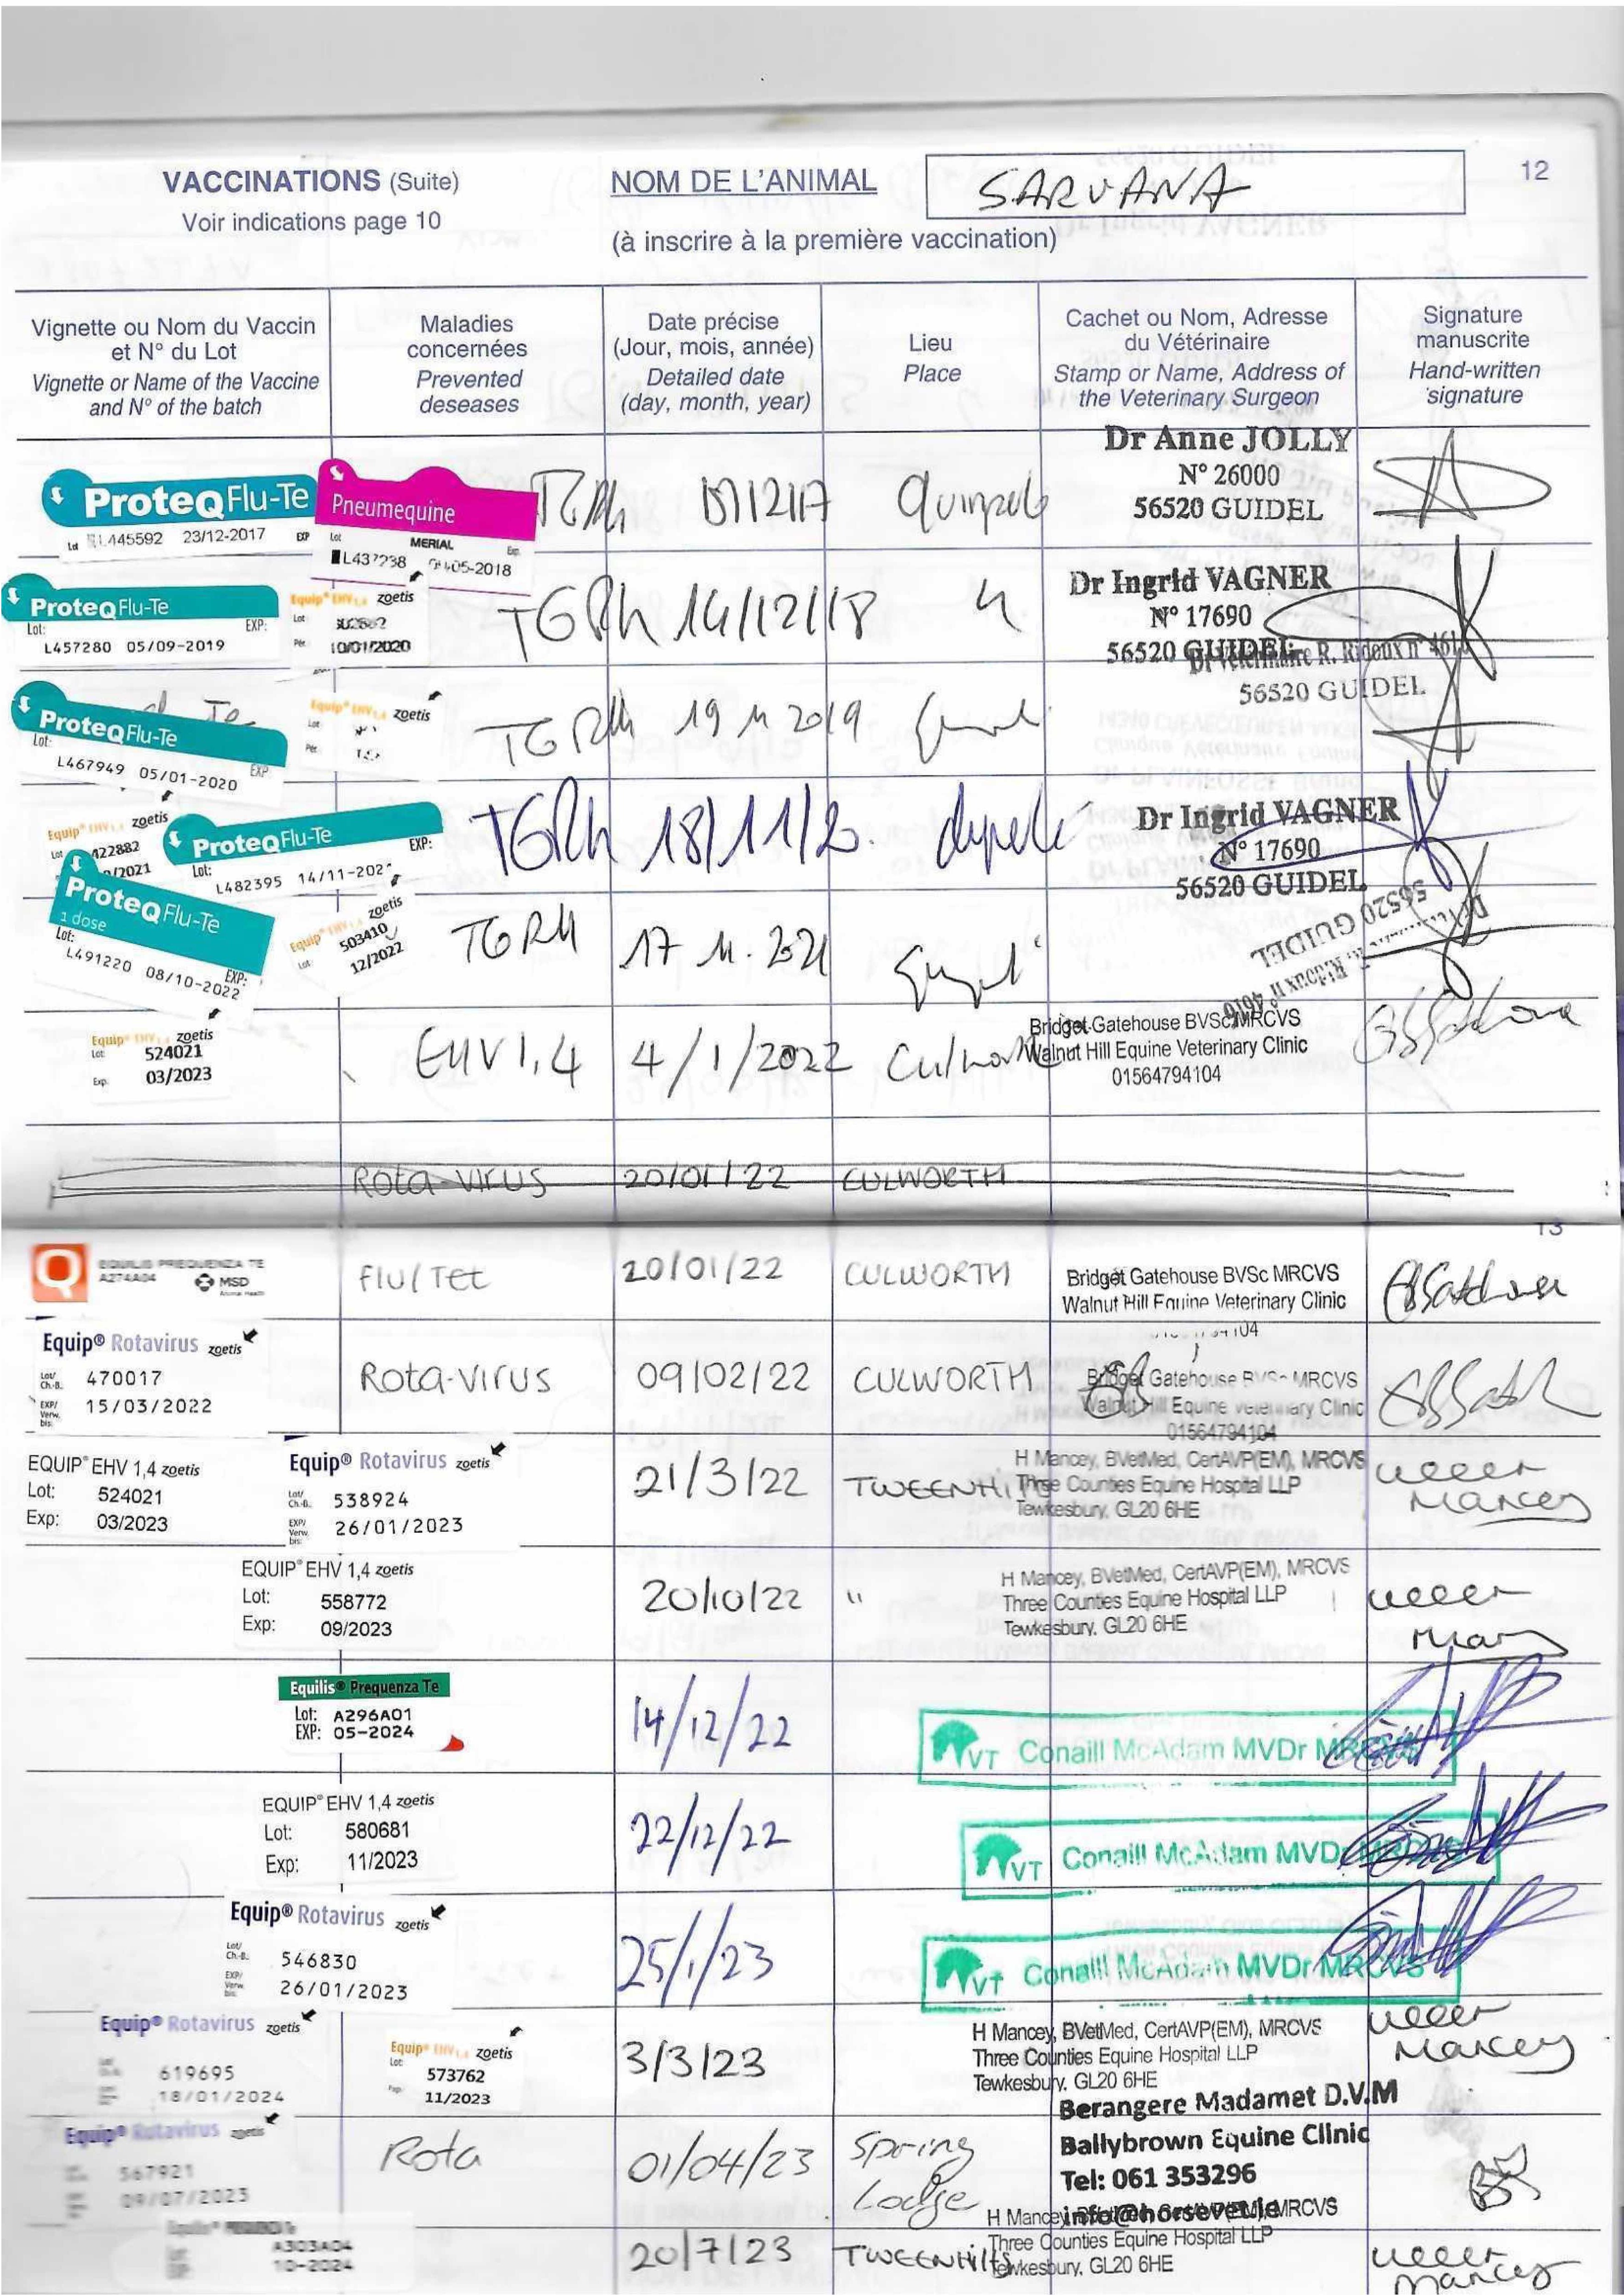 12
VACCINATIONS (Suite)
Voir indications page 10
NOM DE L'ANIMAL
SARVANA
(à inscrire à la première vaccination)
Vignette ou Nom du Vaccin et N° du Lot
Vignette or Name of the Vaccine and N° of the batch
Maladies concernées
Prevented deseases
Date précise (Jour, mois, année)
Detailed date (day, month, year)
Lieu
Place
Cachet ou Nom, Adresse du Vétérinaire
Stamp or Name, Address of the Veterinary Surgeon
Signature manuscrite
Hand-written signature
ProteqFlu-Te
Lot L445592 23/12-2017 EXP
Pneumequine
Lot MERIAL Exp.
05-2018
TGRh
Dr Anne JOLLY
N° 26000
56520 GUIDEL
ProteqFlu-Te
Lot: EXP:
L457280 05/09-2019
Equip® EHV 1,4 zoetis
Lot
Per. 10/01/2020
TGRh 14/12/18
Dr Ingrid VAGNER
N° 17690
56520 GUIDEL
Dr Vétérinaire R. Ridoux n° 4616
56520 GUIDEL
ProteqFlu-Te
Lot: EXP
L467949 05/01-2020
Equip® EHV 1,4 zoetis
Lot
Per.
TGRh 19 11 2019
Equip® EHV 1,4 zoetis
Lot 422882
/2021
ProteqFlu-Te
Lot: EXP:
L482395 14/11-202
TGRh 18/11/20.
Dr Ingrid VAGNER
N° 17690
56520 GUIDEL
ProteqFlu-Te
1 dose
Lot: EXP:
L491220 08/10-2022
Equip® zoetis
Lot: 503410
12/2022
TGRH 17 11. 2021
R. Ridoux n° 4616
56520 GUIDEL
Equip® EHV 1,4 zoetis
Lot: 524021
Exp. 03/2023
EHV 1,4 4/1/2022 Culworth
Bridget Gatehouse BVSc MRCVS
Walnut Hill Equine Veterinary Clinic
01564794104
Rota-virus 20/01/22 CULWORTH
13
EQUILIS PREQUENZA TE
A274A04 MSD
Animal Health
Flu/Tet 20/01/22 CULWORTH
Bridget Gatehouse BVSc MRCVS
Walnut Hill Equine Veterinary Clinic
Equip® Rotavirus zoetis
Lot/ Ch.-B. 470017
EXP/ Verw. bis: 15/03/2022
Rota-virus 09/02/22 CULWORTH
Bridget Gatehouse BVSc MRCVS
Walnut Hill Equine Veterinary Clinic
01564794104
EQUIP® EHV 1,4 zoetis
Lot: 524021
Exp: 03/2023
Equip® Rotavirus zoetis
Lot/ Ch.-B. 538924
EXP/ Verw. bis: 26/01/2023
21/3/22 TWEENHILLS
H Mancey, BVetMed, CertAVP(EM), MRCVS
Three Counties Equine Hospital LLP
Tewkesbury, GL20 6HE
Mancey
EQUIP® EHV 1,4 zoetis
Lot: 558772
Exp: 09/2023
20/10/22 "
H Mancey, BVetMed, CertAVP(EM), MRCVS
Three Counties Equine Hospital LLP
Tewkesbury, GL20 6HE
Equilis® Prequenza Te
Lot: A296A01
EXP: 05-2024
14/12/22
VT Conaill McAdam MVDr MRCVS
EQUIP® EHV 1,4 zoetis
Lot: 580681
Exp: 11/2023
22/12/22
VT Conaill McAdam MVDr MRCVS
Equip® Rotavirus zoetis
Lot/ Ch.-B. 546830
EXP/ Verw. bis: 26/01/2023
25/1/23
VT Conaill McAdam MVDr MRCVS
Equip® Rotavirus zoetis
619695
18/01/2024
Equip® EHV 1,4 zoetis
Lot: 573762
11/2023
3/3/23
H Mancey, BVetMed, CertAVP(EM), MRCVS
Three Counties Equine Hospital LLP
Tewkesbury, GL20 6HE
Mancey
Equip® Rotavirus zoetis
567921
09/07/2023
Rota 01/04/23 Spring Lodge
Berangere Madamet D.V.M
Ballybrown Equine Clinic
Tel: 061 353296
info@horsevet.ie
A303A04
10-2024
20/7/23 TWEENHILLS
H Mancey, MRCVS
Three Counties Equine Hospital LLP
Tewkesbury, GL20 6HE
Mancey